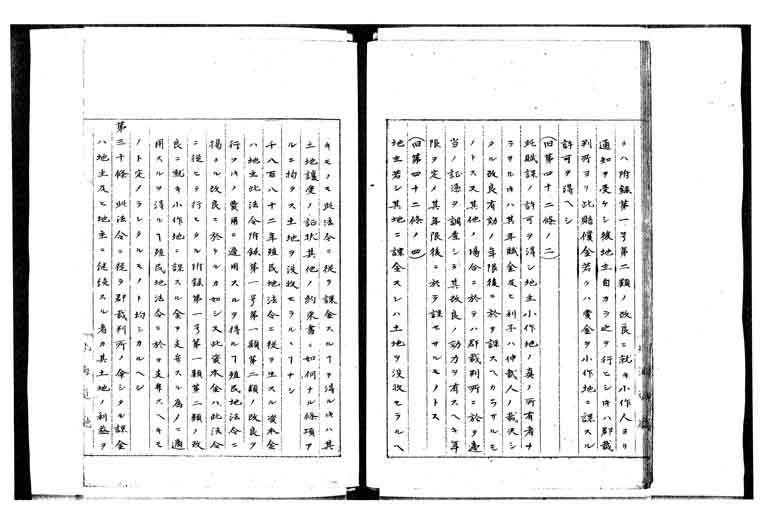 ラハ附録第一号第二類ノ改良ニ就キ小作人ヨリ
通知ヲ受ケシ後地主自カラ之ヲ行ヒシキハ郡裁
判所ヨリ此賠償金若クハ賞金ヲ小作地ニ課スル
許可ヲ得ヘシ
(旧第四十二條ノ二)
此賦課ノ許可ヲ得シ地主小作地ノ真ノ所有者ナ
ラサルキハ其年賦金及ヒ利子ハ仲裁人ノ裁決シ
タル改良有効ノ年限後ニ於テ課スヘカラサルモ
ノトス又其他ノ場合ニ於テハ郡裁判所ニ於テ適
当ノ証憑ヲ調査シテ其改良ノ効力ヲ有スヘキ年
限ヲ定メ其年限後ニ於テ課セサルモノトス
(旧第四十二條ノ四)
地主若シ其地ニ課金スレハ土地ヲ没收セラルヘ
キモノモ此法令ニ從テ課金スルヿヲ得ルキハ其
土地讓受ノ証状其他ノ約束書ニ如何ナル條項ア
ルニ拘ラス土地ヲ没收セラルヽヿナシ
千八百八十二年殖民地法令ニ從テ生スル資本金
ハ地主此法令附録第一号第一類第二類ノ改良ヲ
行フキノ費用ニ適用スルヲ得ルヿ殖民地法令ニ
揭クル改良ニ於ケルカ如シ又此資本金ハ此法令
ニ從ヒテ行ヒタル附録第一号第一類第二類ノ改
良ニ就キ小作地ニ課スル金ヲ支弁スル為メニ適
用スルヲ得ルヿ殖民地法令ニ於テ支弁スヘキモ
ノト定メラレタルモノト均シカルヘシ
第三十條 此法令ニ從ヲ郡裁判所ノ命シタル課金
ハ地主及ヒ地主ニ継続スル者カ其土地ノ利益ヲ